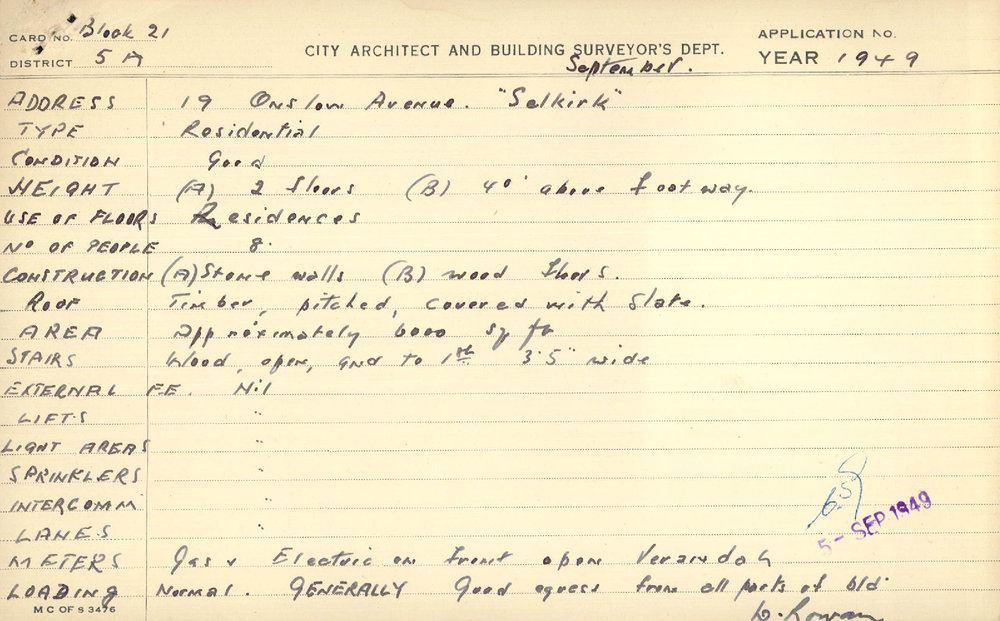 CARD NO. Block 21
APPLICATION NO.
CITY ARCHITECT AND BUILDING SURVEYOR'S DEPT.
DISTRICT 5 A
September. YEAR 1949
ADDRESS 19 Onslow Avenue. "Selkirk"
TYPE Residential
CONDITION Good
HEIGHT (A) 2 floors (B) 40' above footway.
USE OF FLOORS Residences
No OF PEOPLE 8.
CONSTRUCTION (A) Stone walls (B) wood floors.
ROOF Timber, pitched, covered with Slate.
AREA Approximately 6000 sq ft
STAIRS Wood, open, gnd to 1st 3'5" wide
EXTERNAL F.E. Nil
LIFTS "
LIGHT AREAS "
SPRINKLERS "
INTERCOMM "
LANES "
5 - SEP 1949
METERS Gas & Electric on front open Verandah
LOADING Normal. GENERALLY Good egress from all parts of bld
M C OF S 3476